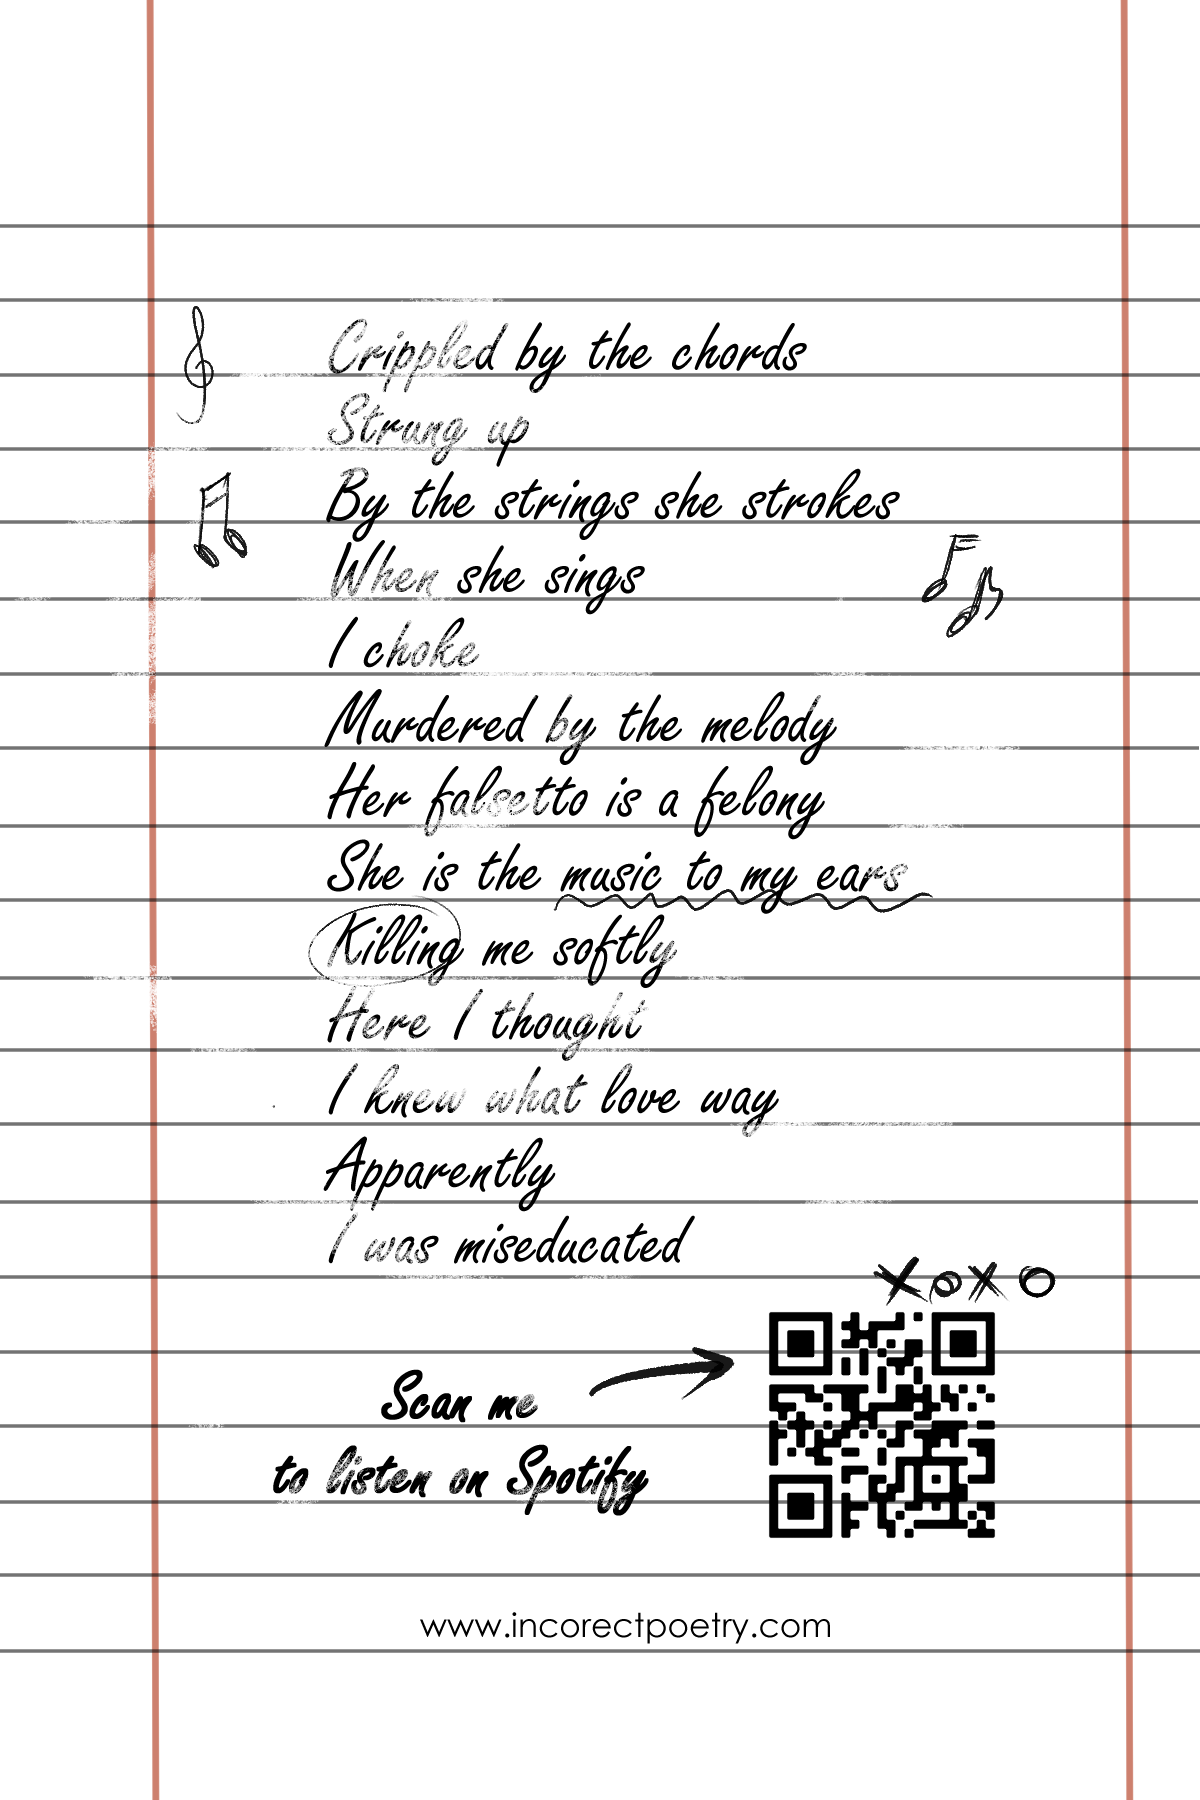 Crippled by the chords
Strung up
By the strings she strokes
When she sings
I choke
Murdered by the melody
Her falsetto is a felony
She is the music to my ears
Killing me softly
Here I thought
I knew what love way
Apparently
I was miseducated
XOXO
Scan me
to listen on Spotify
www.incorectpoetry.com